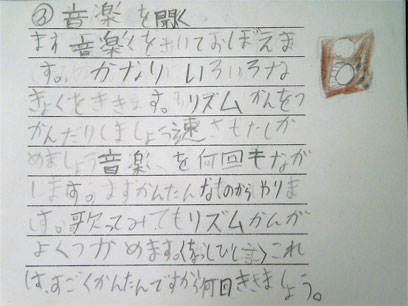 ③音楽を聞く
まず音楽くをきいておぼえま
す。かなりいろいろな
きょくをききます。リズムかんをつ
かんだりしましょう速さもたしか
めましょう音楽を何回もなが
します。まずかんたんなものからやりま
す。歌ってみてもリズムかんが
よくつかめます。これ
は、すごくかんたんですから何回ききましょう。